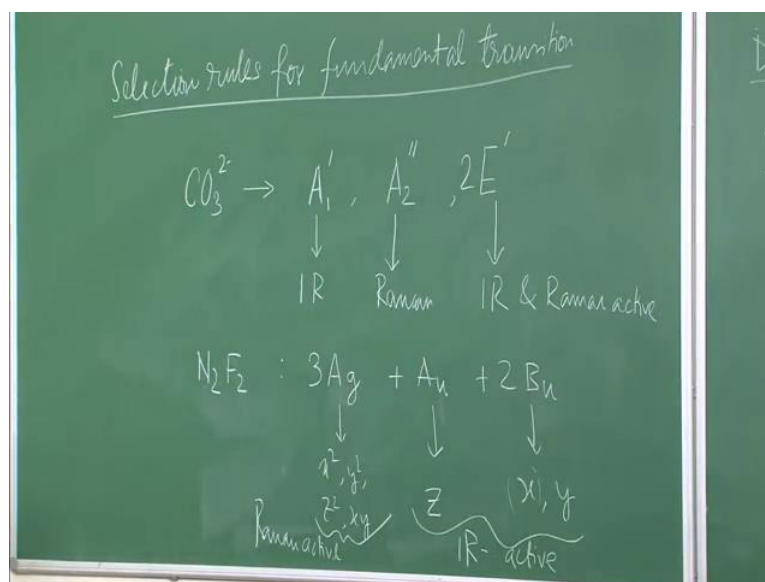 Selection rules for fundamental transition
CO₃²⁻ → A₁′ , A₂″ , 2E′
↓ ↓ ↓
IR Raman IR & Raman active
N₂F₂ : 3Ag + Au + 2Bu
↓ ↓ ↓
x², y², z², xy Z (x), y
Raman active IR-active